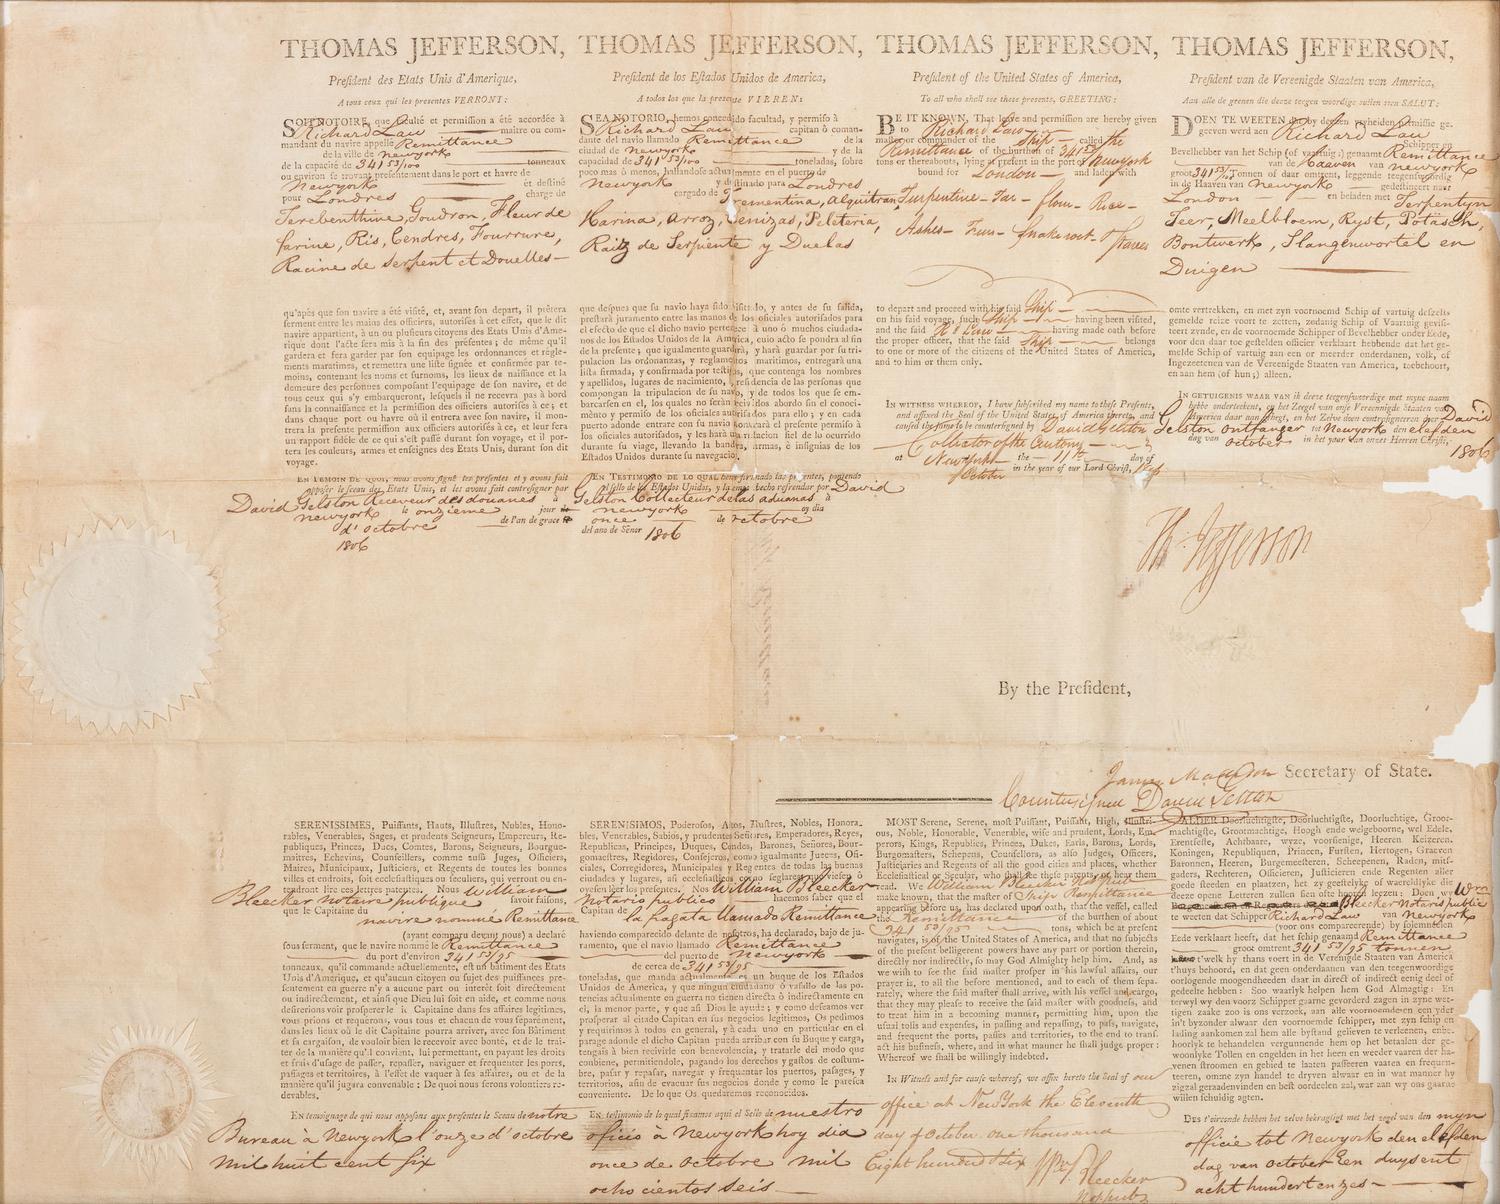 THOMAS JEFFERSON,
President des Etats Unis d'Amerique,
A tous ceux qui les presentes VERRONT:
SOIT NOTOIRE, que faculté et permission a été accordée à
Richard Law maitre ou com-
mandant du navire appellé Remittance
de la ville de Newyork
de la capacité de 341 53/100 tonneaux
ou environ se trouvant presentement dans le port et havre de
Newyork et destiné
pour Londres chargé de
Terebenthine, Goudron, Fleur de
farine, Ris, Cendres, Fourrure,
Racine de Serpent et Douelles
qu'après que son navire a été visité, et, avant son depart, il prêtera
serment entre les mains des officiers, autorisés à cet effet, que le dit
navire appartient, à un ou plusieurs citoyens des Etats Unis d'Ame-
rique dont l'acte sera mis à la fin des présentes; de même qu'il
gardera et fera garder par son equipage les ordonnances et règle-
mens maratimes, et remettra une liste signée et confirmée par te-
moins, contenant les noms et surnoms, les lieux de naissance et la
demeure des personnes composant l'equipage de son navire, et de
tous ceux qui s'y embarqueront, lesquels il ne recevra pas à bord
sans la connaissance et la permission des officiers autorisés à ce; et
dans chaque port ou havre où il entrera avec son navire, il mon-
trera la presente permission aux officiers autorisés à ce, et leur fera
un rapport fidèle de ce qui s'est passé durant son voyage, et il por-
tera les couleurs, armes et enseignes des Etats Unis, durant son dit
voyage.
EN TEMOIN DE QUOI, nous avons signé les presentes et y avons fait
apposer le sceau des Etats Unis, et les avons fait contresigner par
David Gelston Receveur des douanes à
Newyork le onzieme jour
d'octobre de l'an de grace
1806
THOMAS JEFFERSON,
President de los Estados Unidos de America,
A todos los que la presente VIEREN:
SEA NOTORIO, hemos concedido facultad, y permiso à
Richard Law capitan ò coman-
dante del navio llamado Remittance de la
ciudad de Newyork y de la
capacidad de 341 53/100 toneladas, sobre
poco mas ò menos, hallandose actualmente en el puerto de
Newyork y destinado para Londres
cargado de Trementina, Alquitran
Harina, Arroz, Cenizas, Peleteria,
Raiz de Serpiente y Duelas
que despues que su navio haya sido visitado, y antes de su salida,
prestará juramento entre las manos de los oficiales autorizados para
el efecto de que el dicho navio pertenece à uno ó muchos ciudada-
nos de los Estados Unidos de la America, cuio acto se pondra al fin
de la presente; que igualmente guardará, y hará guardar por su tri-
pulacion las ordinanzas, y reglamentos maritimos, entregará una
lista firmada, y confirmada por testigos, que contenga los nombres
y apellidos, lugares de nacimiento, y residencia de las personas que
compongan la tripulacion de su navio, y de todos los que se em-
barcarsen en el, los quales no serán recividos abordo sin el conoci-
mento y permiso de los oficiales autorisados para ello; y en cada
puerto adonde entrare con su navio mostrará el presente permiso à
los oficiales autorizados, y les hará una relacion fiel de lo ocurrido
durante su viage, llevando la bandera, armas, è insignias de los
Estados Unidos durante su navegacion.
EN TESTIMONIO DE LO QUAL hemos firmado las presentes, poniendo
el sello de los Estados Unidos, y la emos hecho refrendar por David
Gelston Collecteur de las aduanas à
Newyork oy dia
once de octobre
del ano de Señor 1806
THOMAS JEFFERSON,
President of the United States of America,
To all who shall see these presents, GREETING:
BE IT KNOWN, That leave and permission are hereby given
to Richard Law
master or commander of the Ship called the
Remittance of the burthen of 341 53/95
tons or thereabouts, lying at present in the port of Newyork
bound for London and laden with
Turpentine - Tar - flour - Rice -
Ashes - Furs - Snakeroot & Staves
to depart and proceed with his said Ship
on his said voyage, such Ship having been visited,
and the said Rd Law having made oath before
the proper officer, that the said Ship belongs
to one or more of the citizens of the United States of America,
and to him or them only.
IN WITNESS WHEREOF, I have subscribed my name to these Presents,
and affixed the Seal of the United States of America thereto, and
caused the same to be countersigned by David Gelston
Collector of the Customs
at New York the 11th day of
October in the year of our Lord Christ, 1806
THOMAS JEFFERSON,
President van de Vereenigde Staaten van America,
Aan alle de geenen die deeze teegen woordige sullen sien SALUT:
DOEN TE WEETEN dat by deezen vryheiden permissie ge-
geeven werd aen Richard Law
Schipper en
Bevelhebber van het Schip (of vaartuig) genaamt Remittance
van de Haeven van Newyork
groot 341 53/95 Tonnen of daar omtrent, leggende teegenswoordig
in de Haaven van Newyork gedestineert naar
London en beladen met Terpentyn
Teer, Meelbloem, Ryst, Potasch,
Bontwerk, Slangenwortel en
Duigen
omte vertrekken, en met zyn voornoemd Schip of vartuig deszelfs
gemelde reize voort te zetten, zodanig Schip of Vaartuig gevisi-
teert zynde, en de voornoemde Schipper of Bevelhebber onder Eede,
voor den daar toe gestelden officier verklaart hebbende dat het ge-
melde Schip of vartuig aan een or meerder onderdanen, volk, of
Ingezeetenen van de Vereenigde Staaten van America, toebehoort,
en aan hem (of hun;) alleen.
IN GETUIGENIS WAAR VAN ik deeze teegenswoordige met myne naam
hebbe onderteekent, en het Zeegel van onze Vereenigde Staaten van
America daar aan gehegt, en het Zelve doen contrasigneren door David
Gelston ontfanger tot Newyork den elefden
dag van october in het jaar van onzen Heeren Christi,
1806
Th: Jefferson
By the President,
James Madison Secretary of State.
Countersigned David Gelston
SERENISSIMES, Puissants, Hauts, Illustres, Nobles, Hono-
rables, Venerables, Sages, et prudents Seigneurs, Empereurs, Re-
publiques, Princes, Ducs, Comtes, Barons, Seigneurs, Bourgue-
maitres, Echevins, Counseillers, comme aussi Juges, Officiers,
Maires, Municipaux, Justiciers, et Regents de toutes les bonnes
villes et endroits, soit ecclesiastiques ou seculiers, qui verront ou en-
tendront lire ces lettres patentes. Nous William
Bleecker notaire publique savoir faisons,
que le Capitaine du
navire nommé Remittance
(ayant comparu devant nous) a declaré
sous serment, que le navire nommé le Remittance
du port d'environ 341 53/95
tonneaux, qu'il commande actuellement, est un bâtiment des Etats
Unis d'Amérique, et qu'aucun citoyen ou sujet des puissances pre-
sentement en guerre n'y a aucune part ou interêt soit directement
ou indirectement, et ainsi que Dieu lui soit en aide, et comme nous
desirerions voir prosperer le it Capitaine dans ses affaires legitimes,
vous prions et requérons, vous tous et chacun de vous separément,
dans les lieux où le dit Capitaine pourra arriver, avec son Bâtiment
et sa cargaison, de vouloir bien le recevoir avec bonté, et de le trai-
ter de la manière qu'il convient, lui permettant, en payant les droits
et frais d'usage de passer, repasser, naviguer et frequenter les ports,
passages et territoires, à l'effet de vaquer à ses affaires, ou et de la
manière qu'il jugera convenable: De quoi nous serons volontiers re-
devables.
EN temoignage de qui nous apposons aux presentes le Sceau de notre
Bureau à Newyork l'onze d'octobre
mil huit cent six
SERENISIMOS, Poderosos, Altos, Ilustres, Nobles, Honora-
bles, Venerables, Sabios, y prudentes Señores, Emperadores, Reyes,
Republicas, Principes, Duques, Condes, Barones, Señores, Bour-
gomaestres, Regidores, Consejeros, como igualmente Jueces, Ofi-
ciales, Corregidores, Municipales y Regentes de todas las buenas
ciudades y lugares, asi ecclesiasticos como seglares, que viesen ò
oyesen léer los presentes. Nos William Bleecker
notario publico hacemos saber que el
Capitan de la fragata llamado Remittance
haviendo comparecido delante de nosotros, ha declarado, bajo de ju-
ramento, que el navio llamado Remittance
del puerto de Newyork
de cerca de 341 53/95
toneladas, que manda actualmente es un buque de los Estados
Unidos de America, y que ningun ciudadano ò vasallo de las po-
tencias actualmente en guerra no tienen directa ò indirectamente en
el, la menor parte, y que asi Dios le ayude; y como deseamos ver
prosperar al citado Capitan en sus negocios legitimos, Os pedimos
y requirimos à todos en general, y à cada uno en particular en el
parage adonde el dicho Capitan pueda arribar con su Buque y carga,
tengais à bien recivirle con benevolencia, y tratarle del modo que
combiene, permitiendole, pagando los derechos y gastos de costum-
bre, pasar y repasar, navegar y frequentar los puertos, pasages, y
territorios, afin de evacuar sus negocios donde y como le paresca
conveniente. De lo que Os quedaremos reconocidos.
EN testimonio de lo qual fixamos aqui el Sello de nuestro
oficio à Newyork hoy dia
once de octobre mil
ocho cientos seis
MOST Serene, Serene, most Puissant, Puissant, High, Illustri-
ous, Noble, Honorable, Venerable, wise and prudent, Lords, Em-
perors, Kings, Republics, Princes, Dukes, Earls, Barons, Lords,
Burgomasters, Schepens, Counsellors, as also Judges, Officers,
Justiciaries and Regents of all the good cities and places, whether
Ecclesiastical or Secular, who shall see these patents, or hear them
read. We William Bleecker Not Pub
make known, that the master of Ship Remittance
appearing before us, has declared upon oath, that the vessel, called
the Remittance of the burthen of about
341 53/95 tons, which he at present
navigates, is of the United States of America, and that no subjects
of the present belligerent powers have any part or portion therein,
directly nor indirectly, so may God Almighty help him. And, as
we wish to see the said master prosper in his lawful affairs, our
prayer is, to all the before mentioned, and to each of them sepa-
rately, where the said master shall arrive, with his vessel and cargo,
that they may please to receive the said master with goodness, and
to treat him in a becoming manner, permitting him, upon the
usual tolls and expenses, in passing and repassing, to pass, navigate,
and frequent the ports, passes and territories, to the end to trans-
act his business, where, and in what manner he shall judge proper:
Whereof we shall be willingly indebted.
IN Witness and for cause whereof, we affix hereto the Seal of our
office at New York the Eleventh
day of October one thousand
Eight hundred & six Wm Bleecker
Not pub
ALDER Doorluchtigste, Doorluchtige, Groot-
machtigste, Grootmachtige, Hoogh ende welgeboorne, wel Edele,
Erentfeste, Achtbaare, wyze, voorsienige, Heeren Keizeren,
Koningen, Republiquen, Princen, Fursten, Hertogen, Graeven
Baronnen, Heeren, Burgemeesteren, Scheepenen, Raden, mits-
gaders, Rechteren, Officieren, Justicieren ende Regenten aller
goede steeden en plaatzen, het zy geestelyke of waereldlyke die
deeze opene Letteren zullen sien ofte hooren lezen: Doen wy Wm
Bleecker Notaris public
te weeten dat Schipper Richard Law van Newyork
(voor ons compareerende) by solemneelen
Eede verklaart heeft, dat het schip genaamd Remittance
groot omtrent 341 53/95 tonnen
t'welk hy thans voert in de Verenigde Staaten van America
t'huys behoord, en dat geen onderdaanen van den teegenwoordige
oorlogende moogendheeden daar in direct of indirect eenig deel of
gedeelte hebben: Soo waarlyk helpen hem God Almagtig: En
terwyl wy den voorz Schipper gaarne gevorderd zagen in zyne wet-
tigen zaake zoo is ons verzoek, aan alle voornoemden een yder
in't byzonder alwaar den voornoemde schipper, met zyn schip en
lading aankomen zal hem alle bystand gelieve te verleenen, en be-
hoorlyk te behandelen vergunnende hem op het betaalen der ge-
woonlyke Tollen en engelden in het heen en weeder vaaren der ha-
venen stroomen en gebied te laaten passeeren vaaren en frequen-
teeren, omme zyn handel te dryven alwaar en in wat manier hy
zigzal geraadenvinden en best oordeelen zal, war aan wy ons gaarne
willen schuldig agten.
DES t'oirconde hebben het zelve bekragtigt met het zegel van den mijn
officie tot Newyork den elefden
dag van october Een duysent
acht hundert en zes